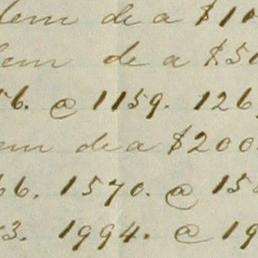 dem de a $10
dem de a $50
56. @ 1159. 126
em de a $200.
66. 1570. @ 15
93. 1994. @ 19